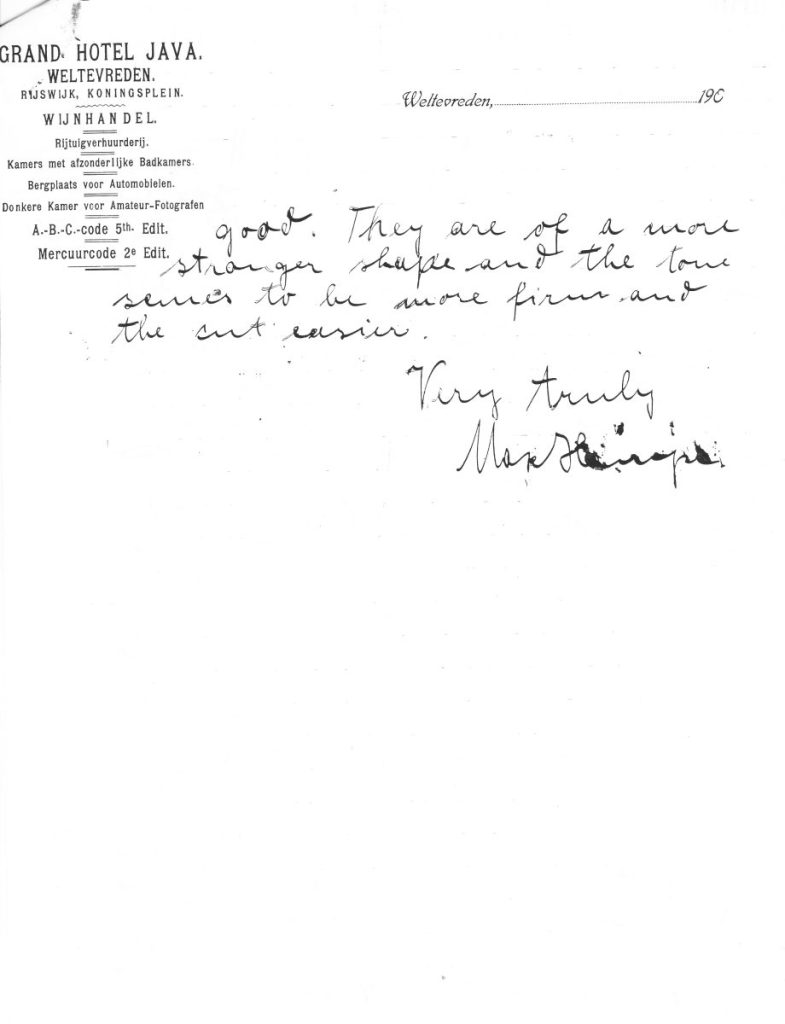 GRAND HOTEL JAVA.
WELTEVREDEN.
RIJSWIJK, KONINGSPLEIN.
WIJNHANDEL.
Rijtuigverhuurderij.
Kamers met afzonderlijke Badkamers.
Bergplaats voor Automobielen.
Donkere Kamer voor Amateur-Fotografen
A.-B.-C.-code 5th. Edit.
Mercuurcode 2e Edit.
Weltevreden, 190
good. They are of a more
stranger shape and the tone
semes to be more firm and
the cut easier.
Very truly
Max